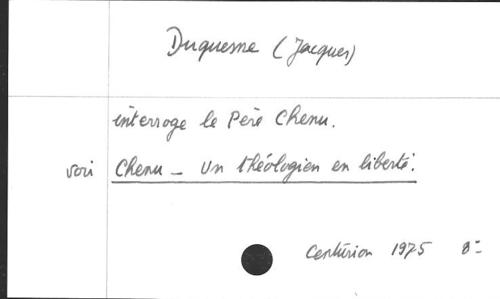 Duquesne (Jacques)
interroge le Père Chenu.
voir Chenu - Un théologien en liberté.
Centurion 1975 8°